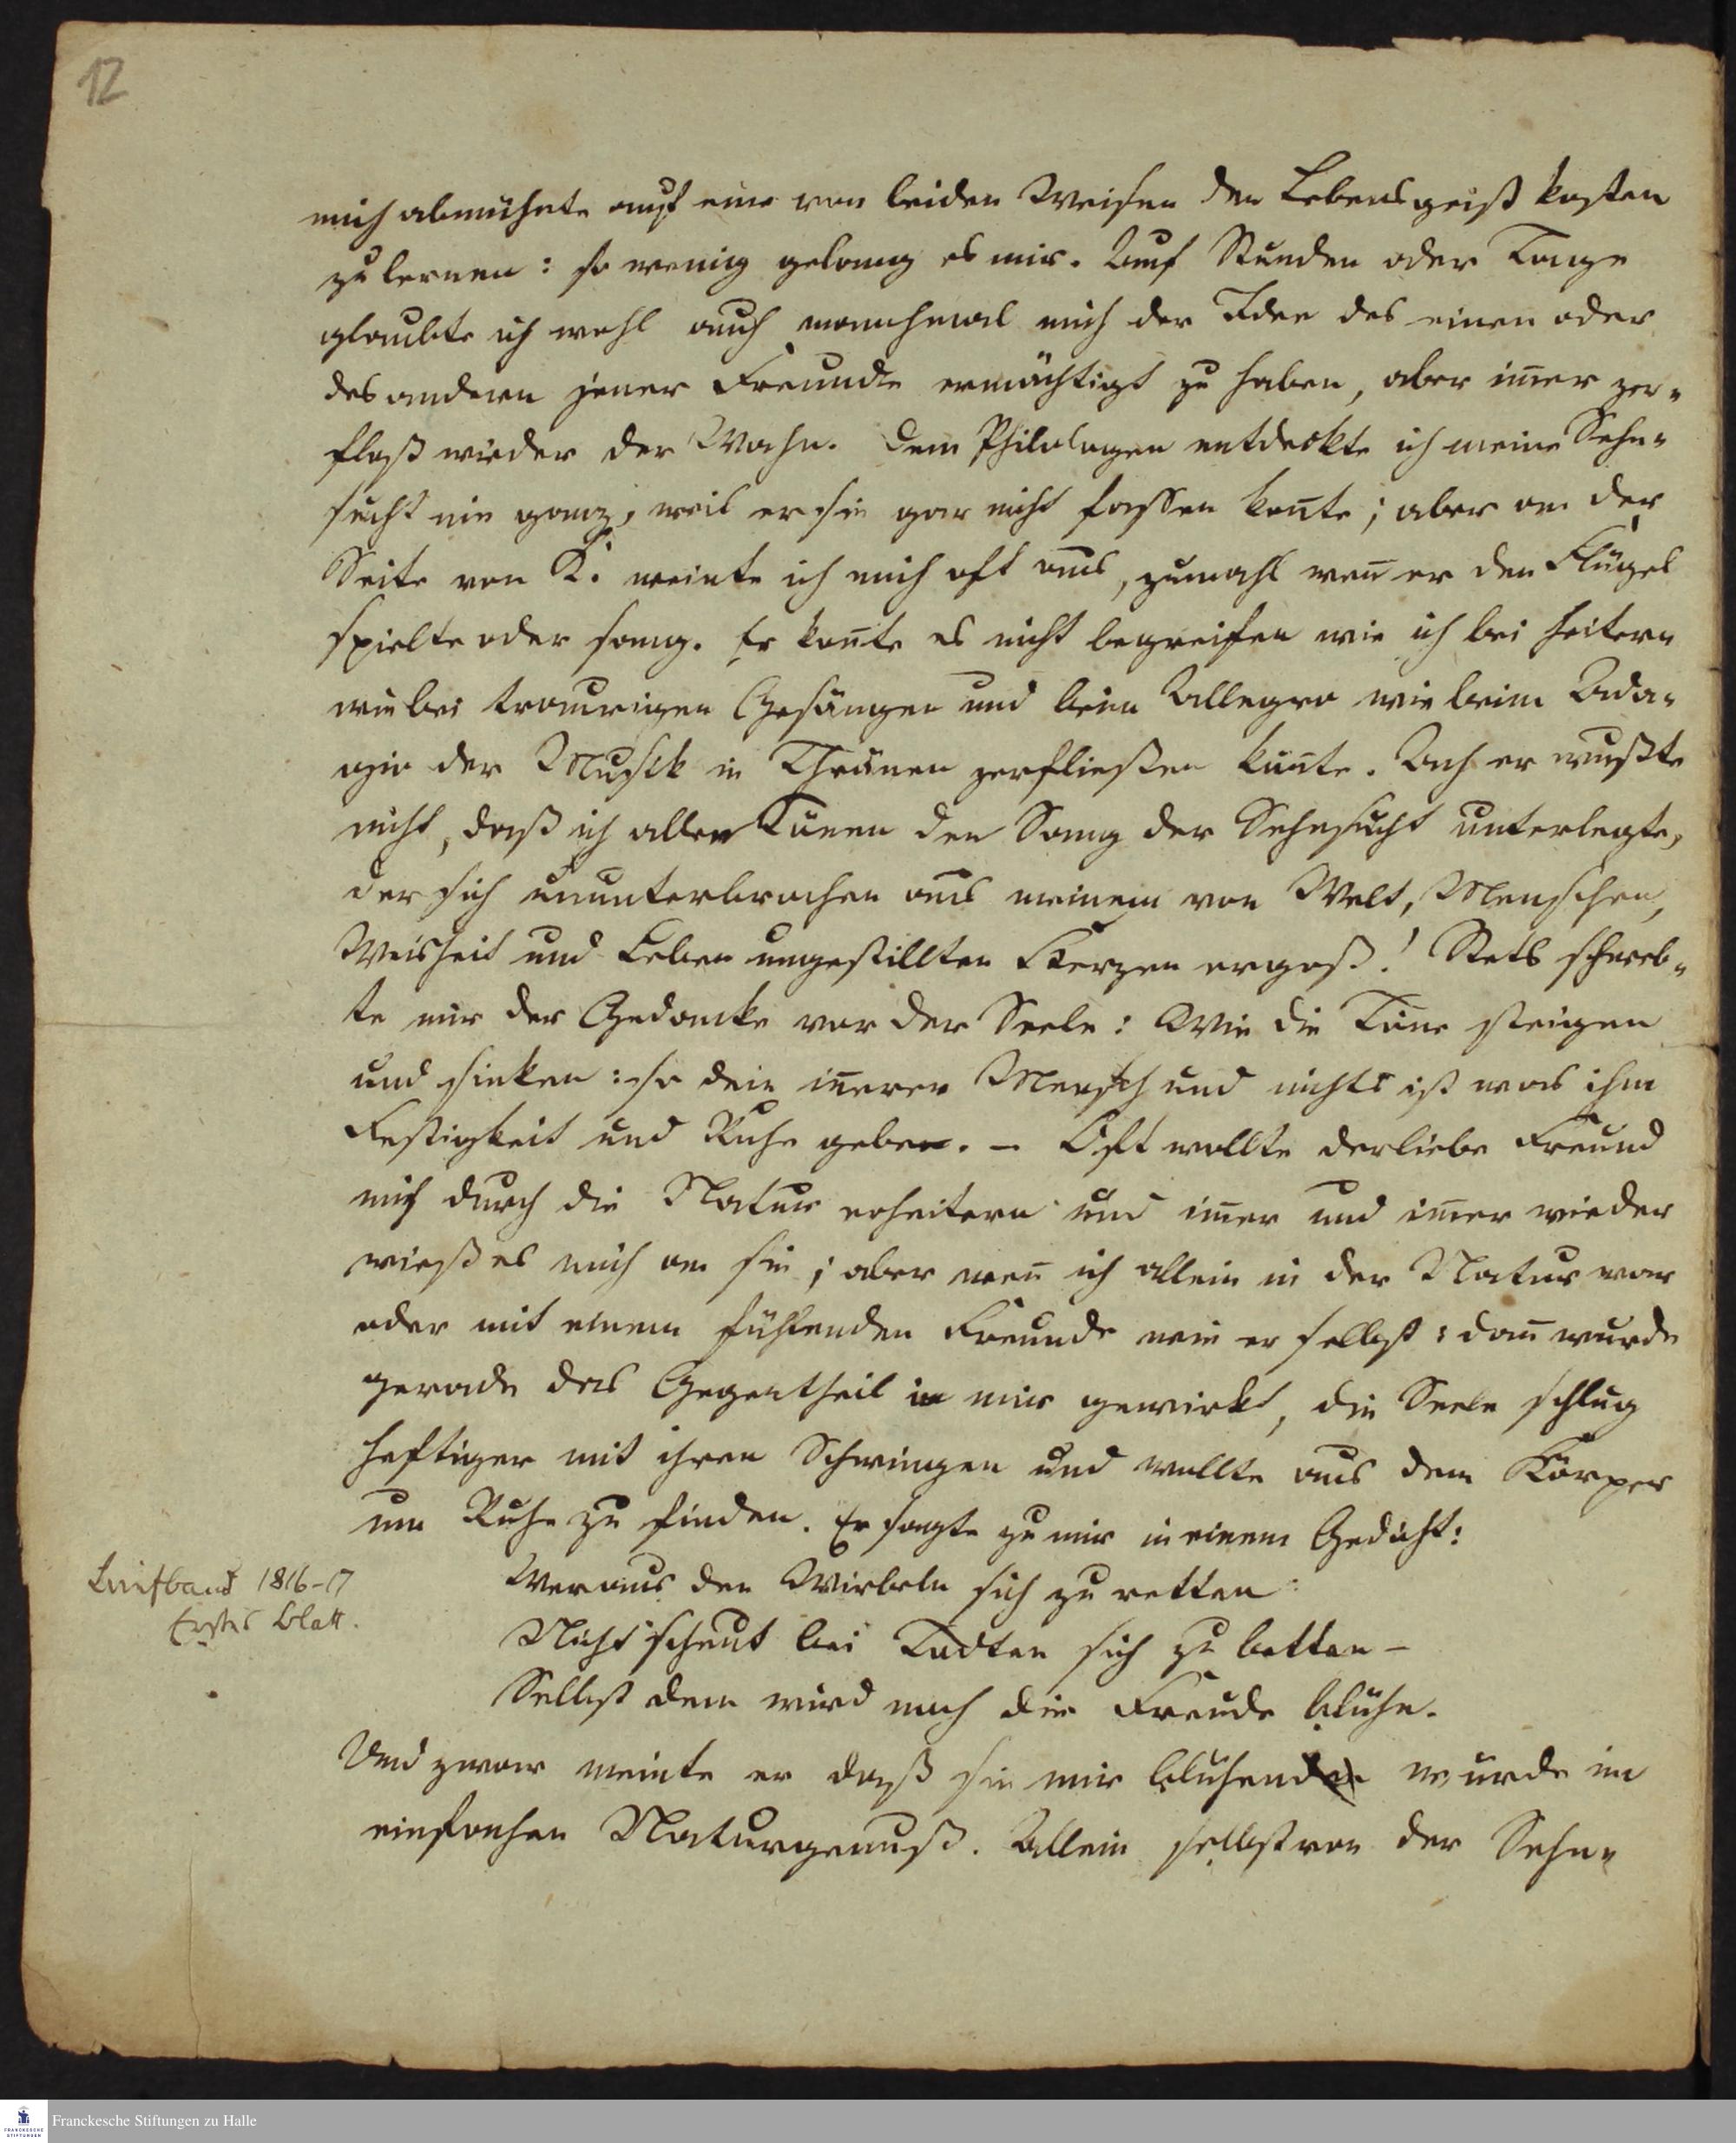 12
mich abmühete auf eine von beiden Weisen den Lebensgeist kosten
zu lernen: so wenig gelang es mir. Auf Stunden oder Tage
glaubte ich wohl auch manchmal mich der Idee des einen oder
des andern jener Freunde ermächtigt zu haben, aber im̄er zer-
floß wieder der Wahn. Dem Philologen entdeckte ich meine Sehn-
sucht nie ganz, weil er sie gar nicht fassen kon̄te; aber an der
Seite von K. weinte ich mich oft aus, zumahl wen̄ er den Flügel
spielte oder sang. Er kon̄te es nicht begreifen wie ich bei heitern
wie bei traurigen Gesängen und beim Allegro wie beim Ada-
gio der Musick in Thränen zerfließen kön̄te. Ach er wußte
nicht, daß ich allen Tönen den Sang der Sehnsucht unterlegte,
der sich ununterbrochen aus meinem von Welt, Menschen,
Weisheit und Leben ungestillten Herzen ergoß! Stets schweb-
te mir der Gedancke vor der Seele: Wie die Töne steigen
und sinken: so dein in̄erer Mensch und nichts ist was ihm
Festigkeit und Ruhe geben. – Oft wollte der liebe Freund
mich durch die Natur erheitern und im̄er und im̄er wieder
wieß es mich an sie; aber wen̄ ich allein in der Natur war
oder mit einem fühlenden Freunde wie er selbst: dan̄ wurde
gerade das Gegentheil in mir gewirkt, die Seele schlug
heftiger mit ihren Schwingen und wollte aus dem Körper
um Ruhe zu finden. Er sagte zu mir in einem Gedicht:
Briefband 1816-17
Erstes Blatt.
Wer aus den Wirbeln sich zu retten
Nicht scheut bei Todten sich zu betten –
Selbst dem wird noch die Freude blühn.
Und zwar meinte er daß sie mir bluhend wurde im
einfachen Naturgenuß. Allein selbst von der Sehn-
Franckesche Stiftungen zu Halle
FRANCKESCHE
STIFTUNGEN